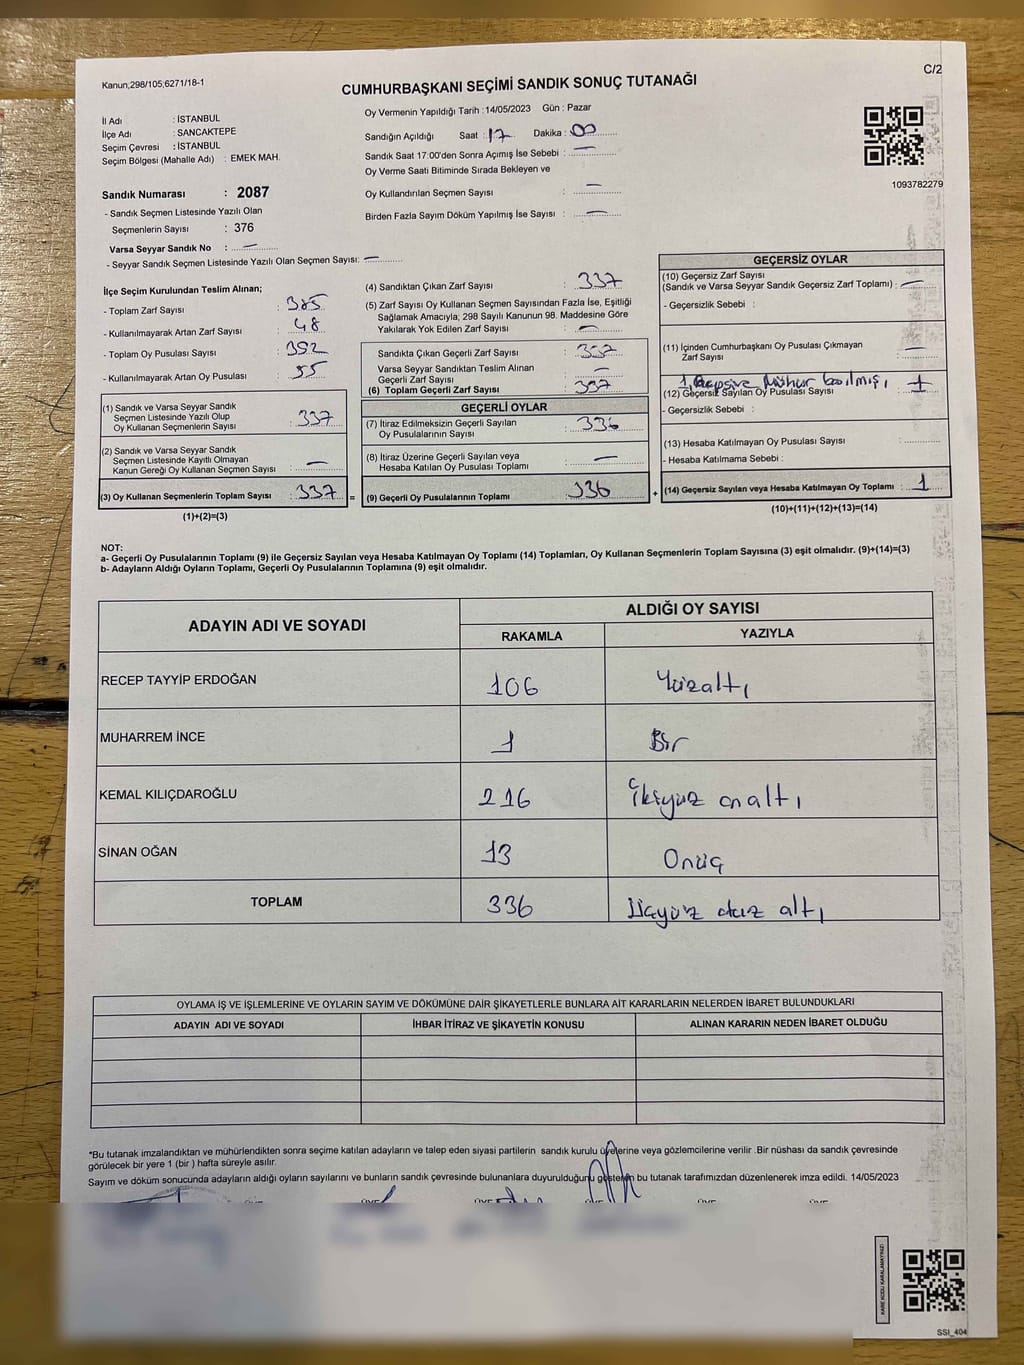 Kanun,298/105;6271/18-1
C/2
CUMHURBAŞKANI SEÇİMİ SANDIK SONUÇ TUTANAĞI
İl Adı : İSTANBUL
İlçe Adı : SANCAKTEPE
Seçim Çevresi : İSTANBUL
Seçim Bölgesi (Mahalle Adı) : EMEK MAH.
Sandık Numarası : 2087
- Sandık Seçmen Listesinde Yazılı Olan
Seçmenlerin Sayısı : 376
Varsa Seyyar Sandık No : —
- Seyyar Sandık Seçmen Listesinde Yazılı Olan Seçmen Sayısı: —
Oy Vermenin Yapıldığı Tarih : 14/05/2023 Gün : Pazar
Sandığın Açıldığı Saat : 17 Dakika : 00
Sandık Saat 17:00'den Sonra Açımış İse Sebebi : —
Oy Verme Saati Bitiminde Sırada Bekleyen ve
Oy Kullandırılan Seçmen Sayısı : —
Birden Fazla Sayım Döküm Yapılmış İse Sayısı : —
1093782279
İlçe Seçim Kurulundan Teslim Alınan;
- Toplam Zarf Sayısı : 385
- Kullanılmayarak Artan Zarf Sayısı : 48
- Toplam Oy Pusulası Sayısı : 392
- Kullanılmayarak Artan Oy Pusulası : 55
(1) Sandık ve Varsa Seyyar Sandık
Seçmen Listesinde Yazılı Olup
Oy Kullanan Seçmenlerin Sayısı : 337
(2) Sandık ve Varsa Seyyar Sandık
Seçmen Listesinde Kayıtlı Olmayan
Kanun Gereği Oy Kullanan Seçmen Sayısı : —
(3) Oy Kullanan Seçmenlerin Toplam Sayısı : 337 =
(1)+(2)=(3)
(4) Sandıktan Çıkan Zarf Sayısı : 337
(5) Zarf Sayısı Oy Kullanan Seçmen Sayısından Fazla İse, Eşitliği
Sağlamak Amacıyla; 298 Sayılı Kanunun 98. Maddesine Göre
Yakılarak Yok Edilen Zarf Sayısı : —
Sandıkta Çıkan Geçerli Zarf Sayısı : 337
Varsa Seyyar Sandıktan Teslim Alınan
Geçerli Zarf Sayısı : —
(6) Toplam Geçerli Zarf Sayısı : 337
GEÇERLİ OYLAR
(7) İtiraz Edilmeksizin Geçerli Sayılan
Oy Pusulalarının Sayısı : 336
(8) İtiraz Üzerine Geçerli Sayılan veya
Hesaba Katılan Oy Pusulası Toplamı : —
(9) Geçerli Oy Pusulalarının Toplamı : 336 +
GEÇERSİZ OYLAR
(10) Geçersiz Zarf Sayısı
(Sandık ve Varsa Seyyar Sandık Geçersiz Zarf Toplamı) : —
- Geçersizlik Sebebi :
(11) İçinden Cumhurbaşkanı Oy Pusulası Çıkmayan
Zarf Sayısı : —
Mühür basılmış, 1
(12) Geçersiz Sayılan Oy Pusulası Sayısı
- Geçersizlik Sebebi :
(13) Hesaba Katılmayan Oy Pusulası Sayısı :
- Hesaba Katılmama Sebebi :
(14) Geçersiz Sayılan veya Hesaba Katılmayan Oy Toplamı : 1
(10)+(11)+(12)+(13)=(14)
NOT:
a- Geçerli Oy Pusulalarının Toplamı (9) ile Geçersiz Sayılan veya Hesaba Katılmayan Oy Toplamı (14) Toplamları, Oy Kullanan Seçmenlerin Toplam Sayısına (3) eşit olmalıdır. (9)+(14)=(3)
b- Adayların Aldığı Oyların Toplamı, Geçerli Oy Pusulalarının Toplamına (9) eşit olmalıdır.
ADAYIN ADI VE SOYADI
ALDIĞI OY SAYISI
RAKAMLA YAZIYLA
RECEP TAYYİP ERDOĞAN 106 Yüzaltı
MUHARREM İNCE 1 Bir
KEMAL KILIÇDAROĞLU 216 İkiyüz onaltı
SİNAN OĞAN 13 Onüç
TOPLAM 336 Üçyüz otuz altı
OYLAMA İŞ VE İŞLEMLERİNE VE OYLARIN SAYIM VE DÖKÜMÜNE DAİR ŞİKAYETLERLE BUNLARA AİT KARARLARIN NELERDEN İBARET BULUNDUKLARI
ADAYIN ADI VE SOYADI İHBAR İTİRAZ VE ŞİKAYETİN KONUSU ALINAN KARARIN NEDEN İBARET OLDUĞU
*Bu tutanak imzalandıktan ve mühürlendikten sonra seçime katılan adayların ve talep eden siyasi partilerin sandık kurulu üyelerine veya gözlemcilerine verilir. Bir nüshası da sandık çevresinde
görülecek bir yere 1 (bir) hafta süreyle asılır.
Sayım ve döküm sonucunda adayların aldığı oyların sayılarını ve bunların sandık çevresinde bulunanlara duyurulduğunu gösteren bu tutanak tarafımızdan düzenlenerek imza edildi. 14/05/2023
KARE KODU KARALAMAYINIZ!
SSI_404